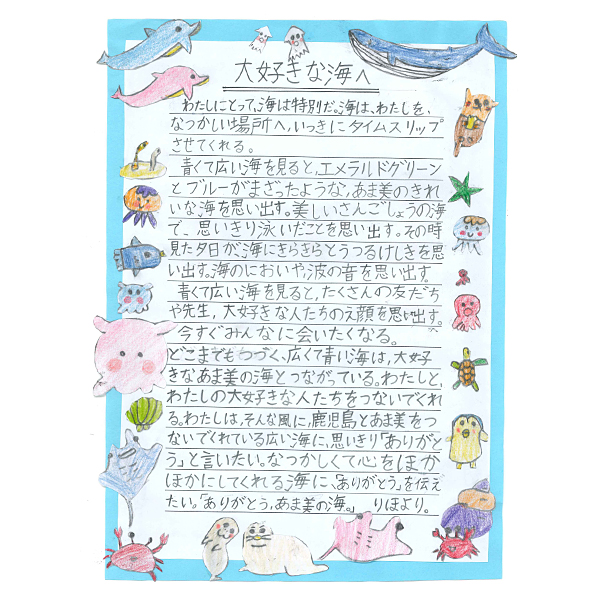 大好きな海へ
わたしにとって、海は特別だ。海は、わたしを、
なつかしい場所へ、いっきにタイムスリップ
させてくれる。
青くて広い海を見ると、エメラルドグリーン
とブルーがまざったような、あま美のきれ
いな海を思い出す。美しいさんごしょうの海
で、思いきり泳いだことを思い出す。その時
見た夕日が、海にきらきらとうつるけしきを思
い出す。海のにおいや、波の音を思い出す。
青くて広い海を見ると、たくさんの友だち
や先生、大好きな人たちのえ顔を思い出す。
今すぐみんなに会いたくなる。
どこまでもつづく、広くて青い海は、大好
きなあま美の海とつながっている。わたしと、
わたしの大好きな人たちをつないでくれ
る。わたしは、そんな風に、鹿児島とあま美をつ
ないでくれている広い海に、思いきり「ありがと
う」と言いたい。なつかしくて心をほか
ほかにしてくれる海に、「ありがとう」を伝え
たい。「ありがとう、あま美の海。」 りほより。